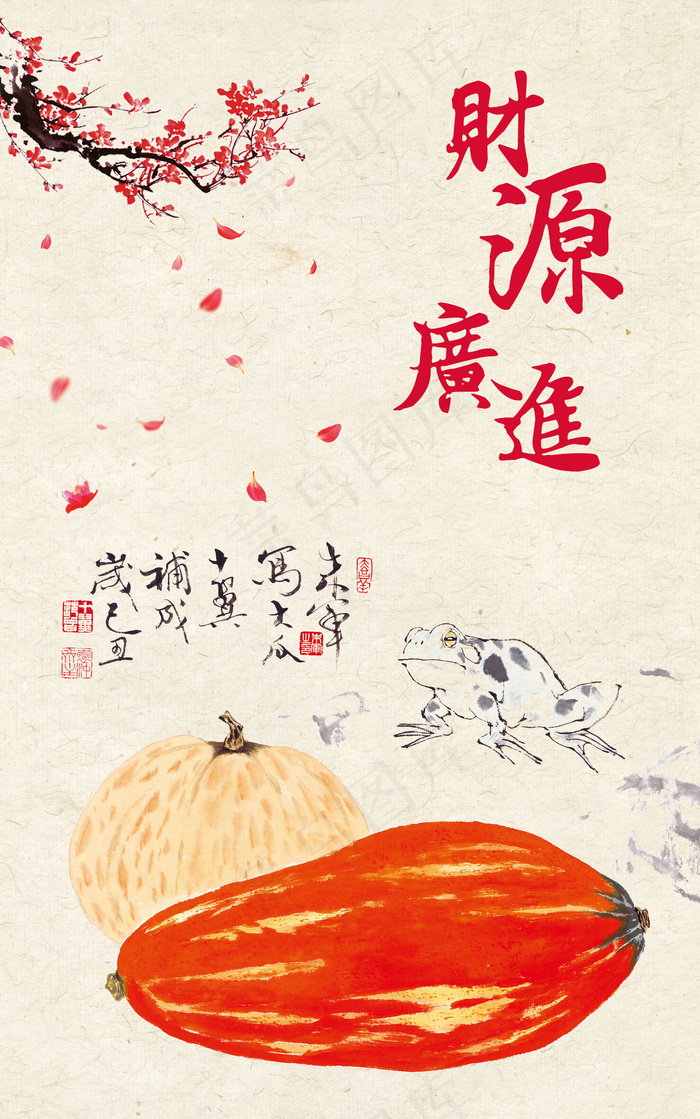 財源廣進
朱軍
寫大瓜
十翼
補成
歲己丑